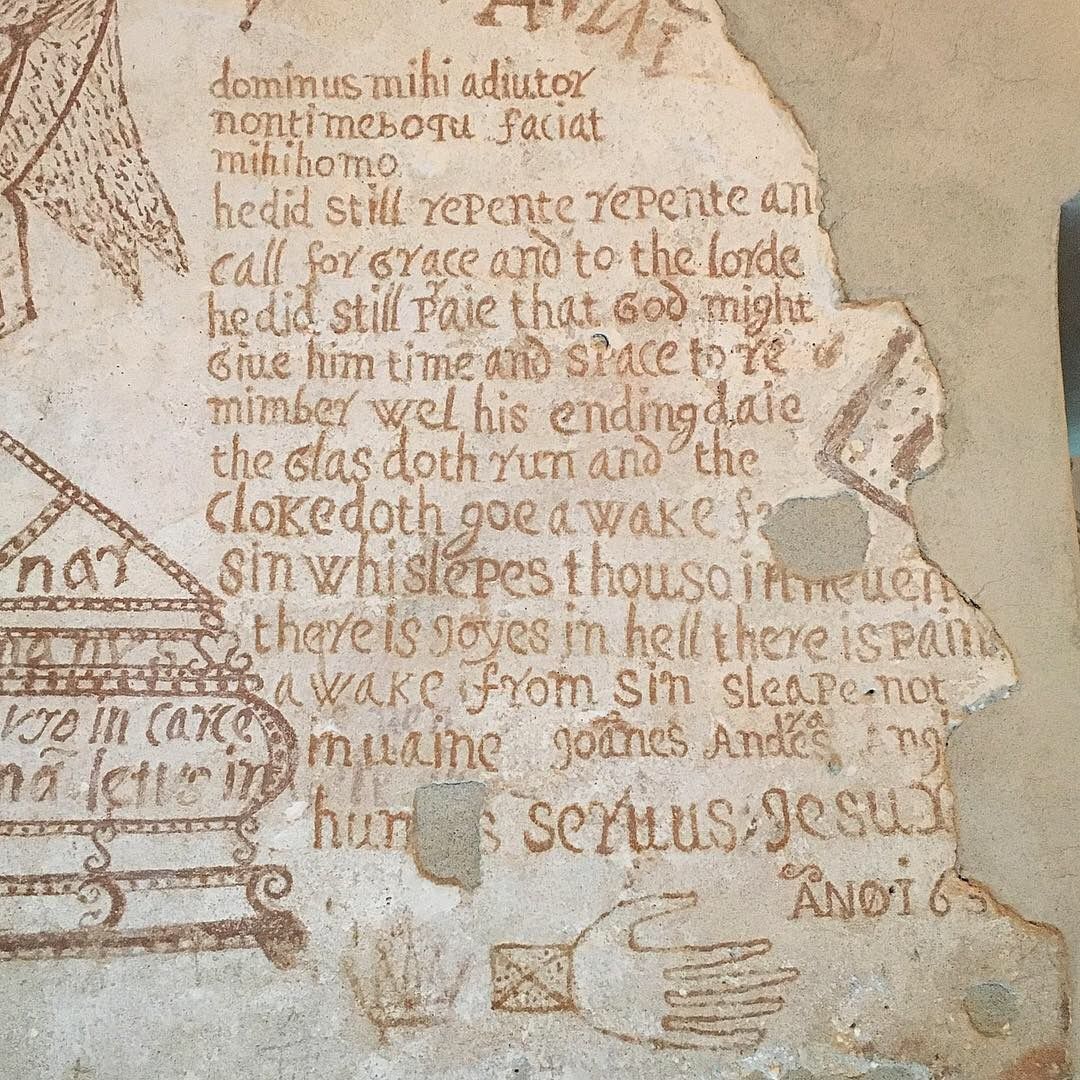 dominus mihi adiutor
non timebo qu faciat
mihi homo
he did still repente repente an
call for Grace and to the lorde
he did still Paie that God might
Giue him time and space to re
mimber wel his ending daie
the Glas doth run and the
Cloke doth goe awake
sin whi slepes thou so in heuen
there is joyes in hell there is Pain
awake from sin sleape not
in uaine joānes Andres
seruus Jesu
ĀNO 163
nar
uro in carce